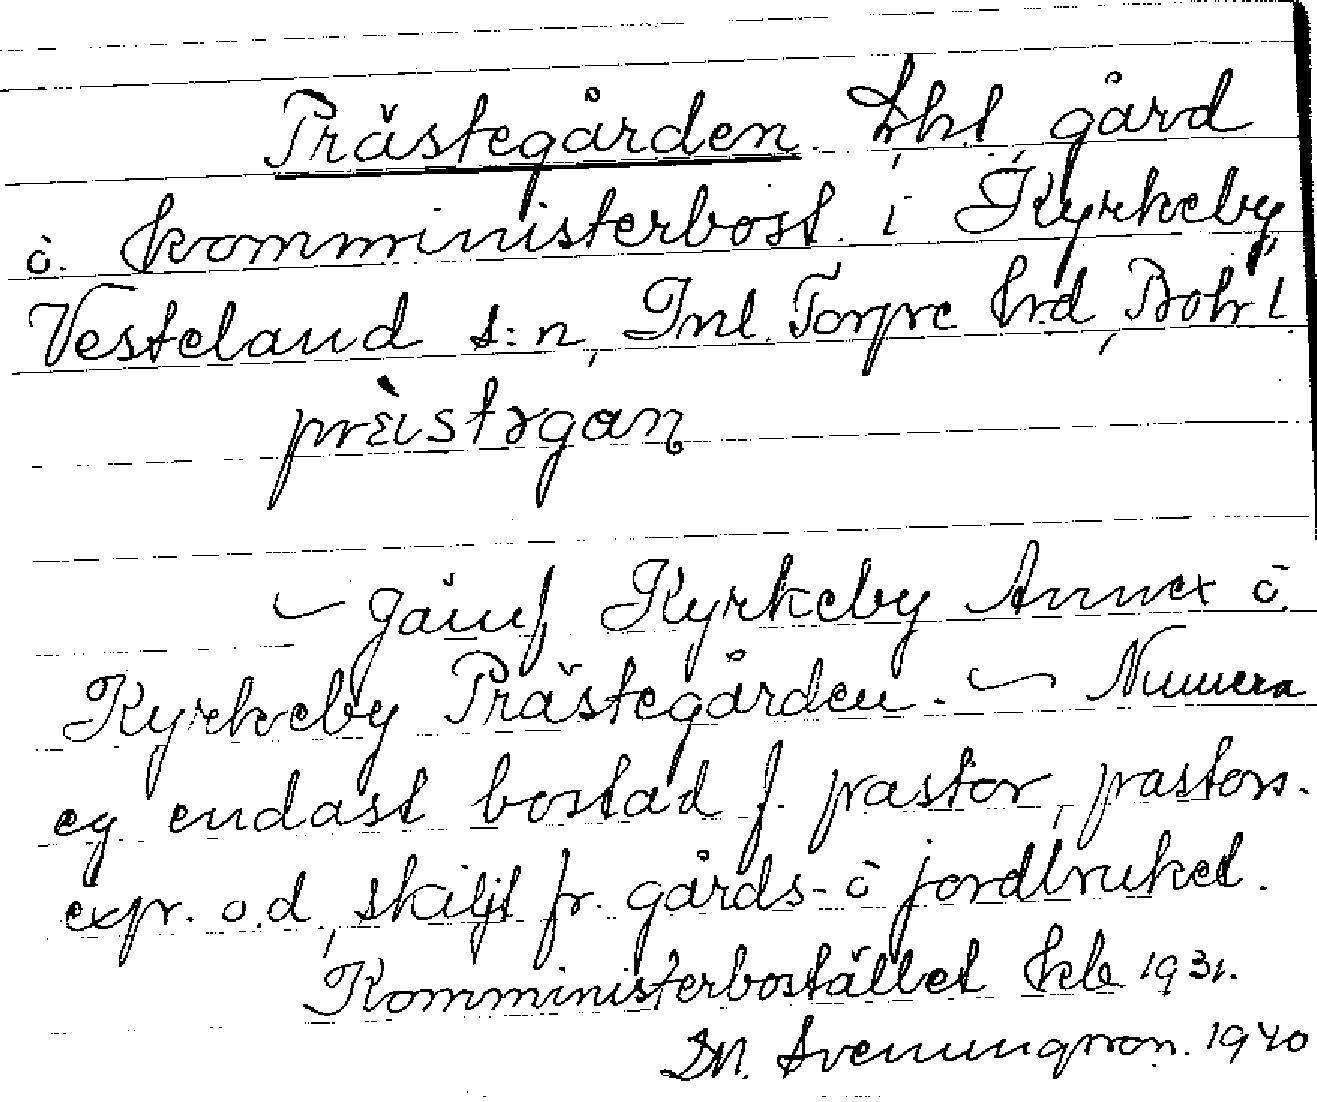 Prästegården. Lht, gård
o. komministerbost. i Kyrkeby,
Vesteland s:n, Inl. Torpe hrd, Bohr l.
prèistǝgan
~ Jämf Kyrkeby Annex o.
Kyrkeby Prästegården. ~ Numera
eg. endast bostad f. pastor, pastors.
expr. o.d, skiljt fr. gårds- o jordbruket.
Komministerbostället kb 1931.
Svenungsson. 1940